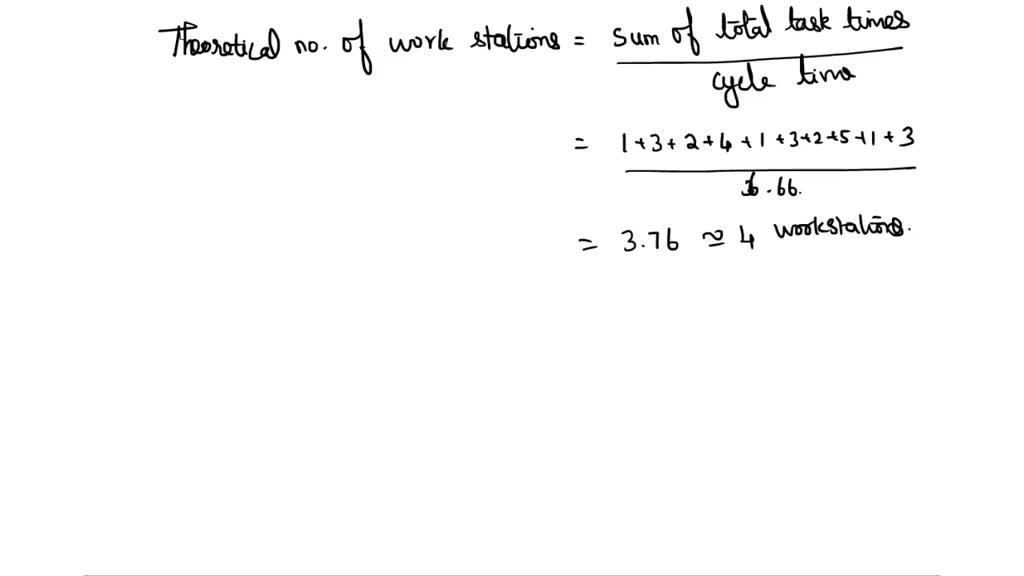 Theoretical no. of work stations = sum of total task times
cycle time
= 1+3+2+4+1+3+2+5+1+3
6.66
= 3.76 ≃ 4 workstations.